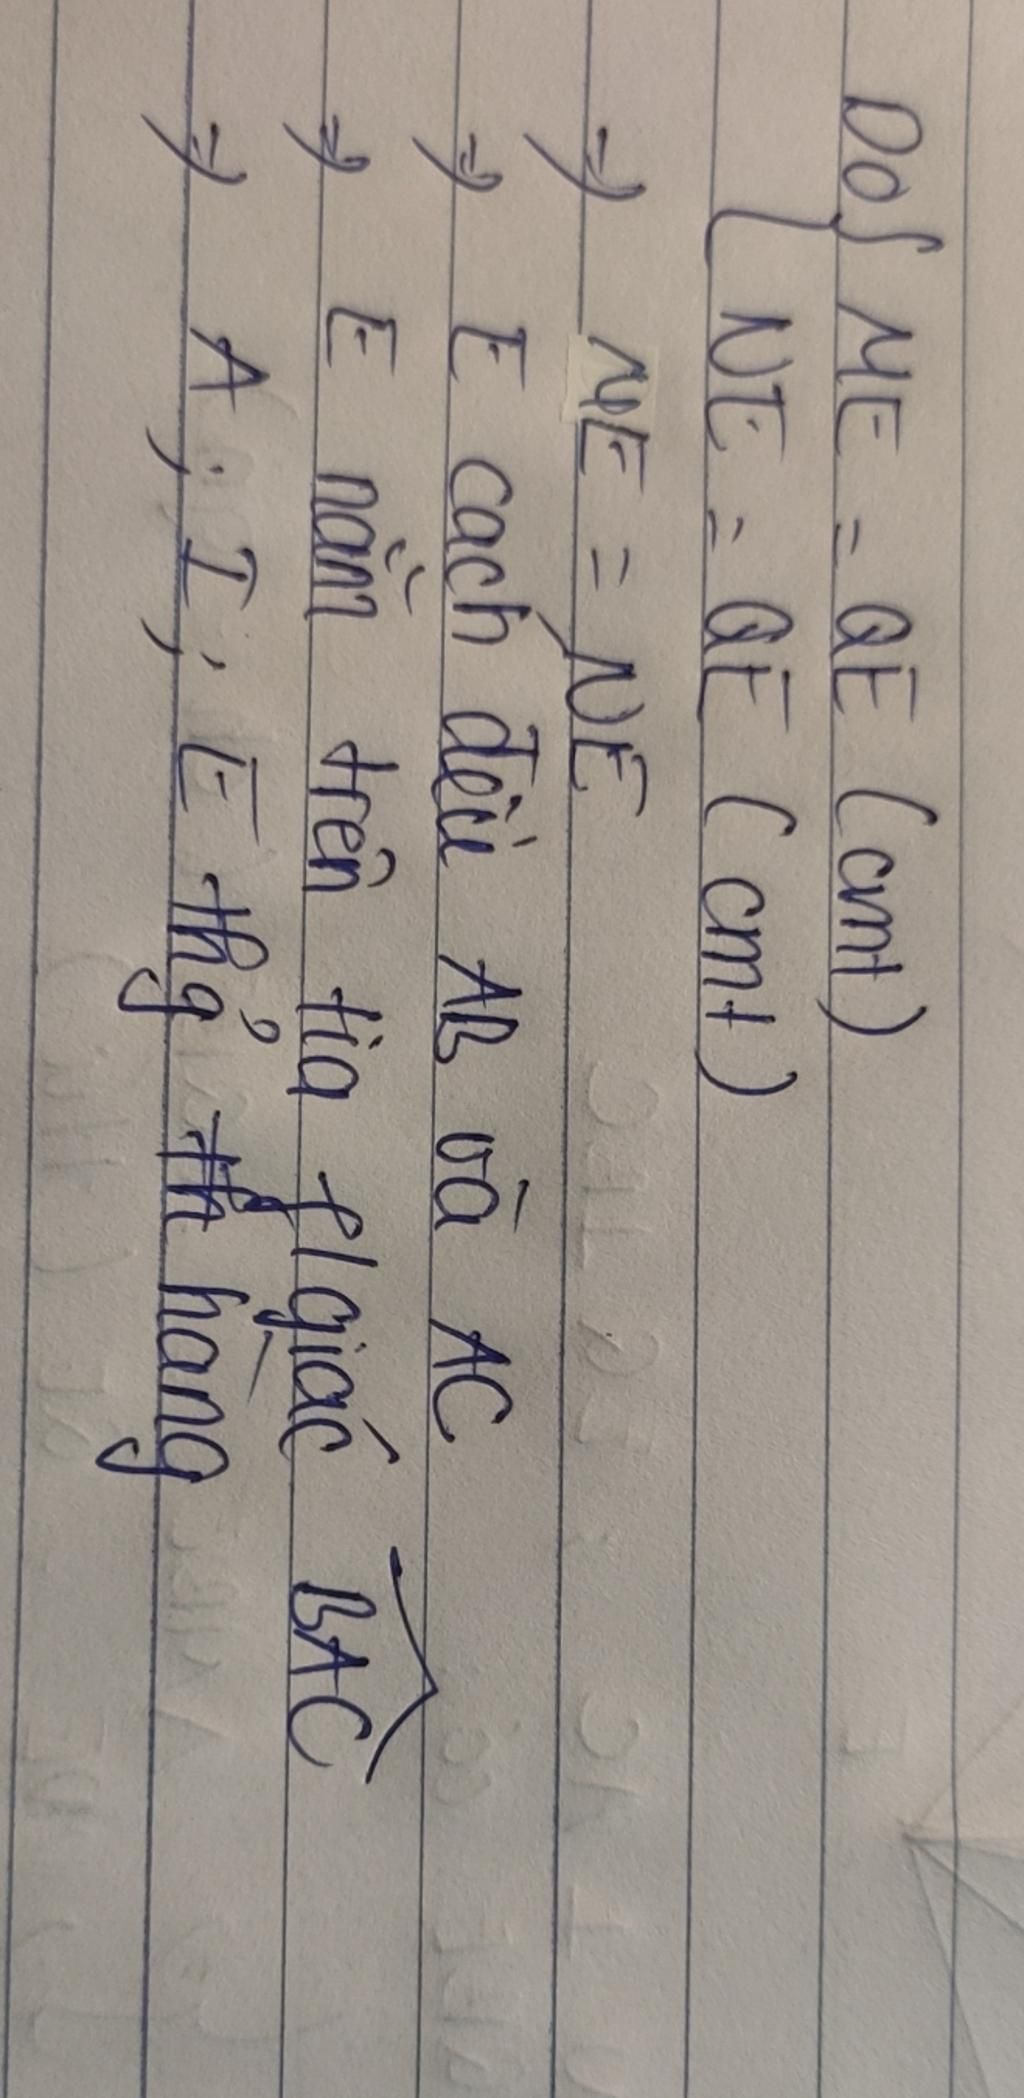 Do { ME = QE (cmt)
NE = QE (cmt)
=> ME = NE
=> E cách đều AB và AC
=> E nằm trên tia f/giác BAC
=> A, I, E thẳng hàng